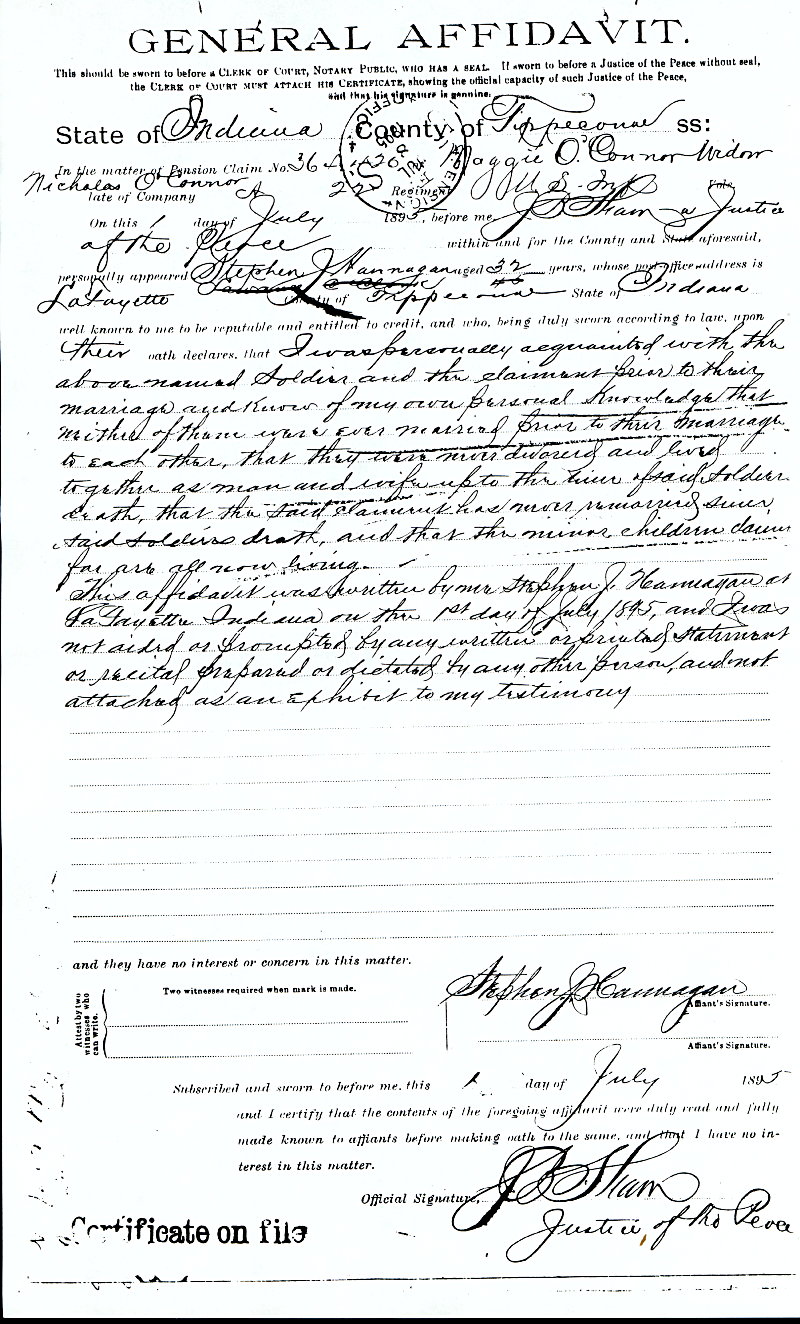 GENERAL AFFIDAVIT.
This should be sworn to before a CLERK OF COURT, NOTARY PUBLIC, WHO HAS A SEAL. If sworn to before a Justice of the Peace without seal,
the CLERK OF COURT MUST ATTACH HIS CERTIFICATE, showing the official capacity of such Justice of the Peace,
and that his signature is genuine.
State of Indiana County of Tippecanoe ss:
In the matter of Pension Claim No. Maggie O'Connor Widow
Nicholas O'Connor
late of Company A 22 Regiment U S. Inf Vols
On this 1 day of July 1895, before me J B Sham a Justice
of the Peace within and for the County and State aforesaid,
personally appeared Stephen J Hannagan aged 32 years, whose post office address is
LaFayette County of Tippecanoe State of Indiana
well known to me to be reputable and entitled to credit, and who, being duly sworn according to law, upon
their oath declares, that I was personally acquainted with the
above named Soldier and the claimant prior to their
marriage and know of my own personal Knowledge that
neither of them were ever married prior to their marriage
to each other, that they were never divorced and lived
together as man and wife up to the time of said Soldier
death, that the said claimant has never remarried since
said soldiers death, and that the minor children claim
for are all now living.
This affidavit was written by me Stephen J. Hannagan at
LaFayette Indiana on the 1st day of July 1895, and I was
not aided or prompted by any written or printed statement
or recital prepared or dictated by any other person, and not
attached as an Exhibit to my testimony
and they have no interest or concern in this matter.
Two witnesses required when mark is made.
Attest by two
witnesses who
can write.
Stephen J Hannagan
Affiant's Signature.
Affiant's Signature.
Subscribed and sworn to before me, this 1 day of July 1895
and I certify that the contents of the foregoing affidavit were duly read and fully
made known to affiants before making oath to the same, and that I have no in-
terest in this matter.
Official Signature, J B Sham
Justice of the Peace
Certificate on file